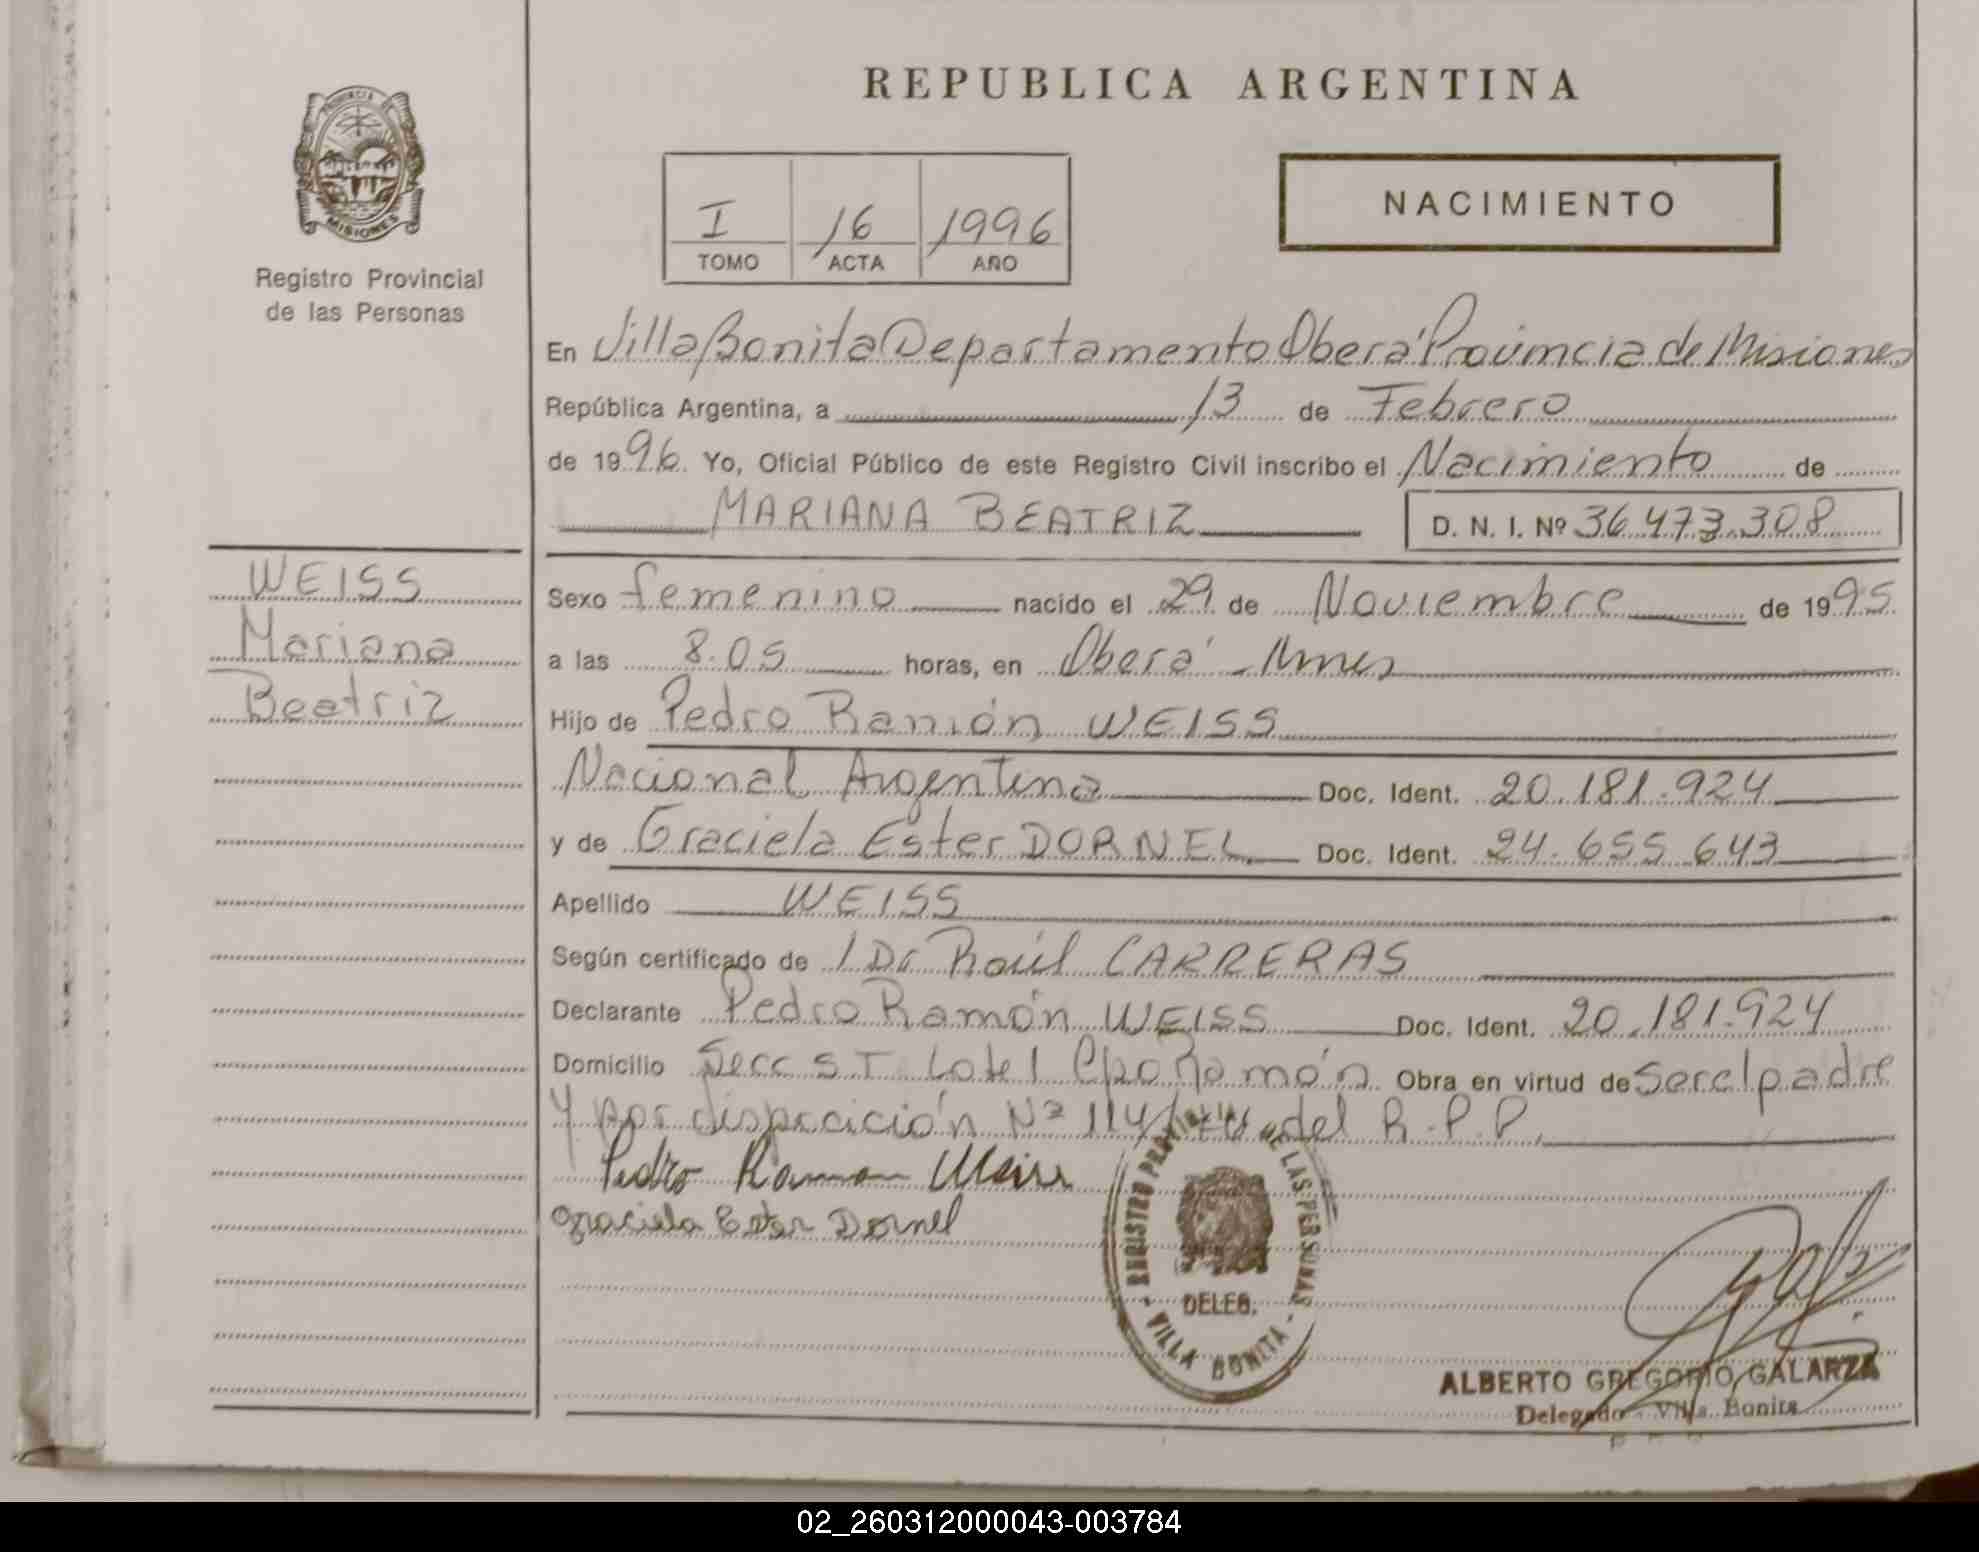 REPUBLICA ARGENTINA
PROVINCIA DE MISIONES
Registro Provincial
de las Personas
I 16 1996
TOMO ACTA AÑO
NACIMIENTO
En Villa Bonita Departamento Oberá Provincia de Misiones
República Argentina, a 13 de Febrero
de 1996. Yo, Oficial Público de este Registro Civil inscribo el Nacimiento de
MARIANA BEATRIZ D. N. I. Nº 36.473.308
WEISS
Mariana
Beatriz
Sexo femenino nacido el 29 de Noviembre de 1995
a las 8.05 horas, en Oberá Mnes
Hijo de Pedro Ramón WEISS
Nacional Argentina Doc. Ident. 20.181.924
y de Graciela Ester DORNEL Doc. Ident. 24.655.643
Apellido WEISS
Según certificado de Dr Raúl CARRERAS
Declarante Pedro Ramón WEISS Doc. Ident. 20.181.924
Domicilio Secc Lote 1 Cpo Ramón Obra en virtud de ser el padre
Y por disposición Nº 114/ del R.P.P.
Pedro Ramon Weiss
Graciela Ester Dornel
REGISTRO PROVINCIAL DE LAS PERSONAS
DELEG.
VILLA BONITA
ALBERTO GREGORIO GALARZA
Delegado - Villa Bonita
02_260312000043-003784